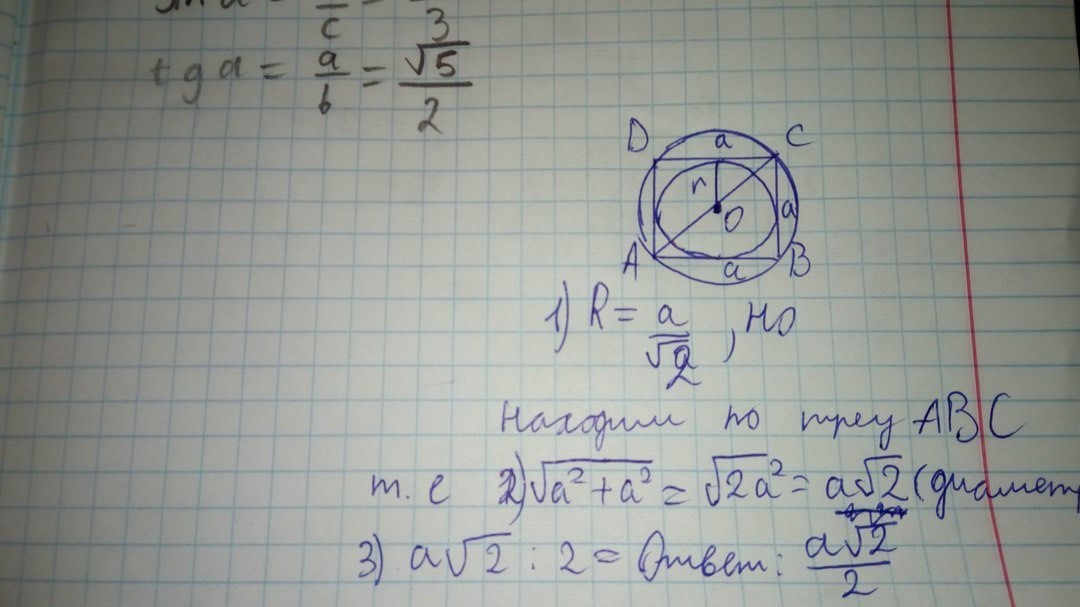 c 3
tg a = a/b = √5/2
D a C
r
O a
A a B
1) R = a/√2 , но
находим по треу ABC
т. е 2) √a² + a² = √2a² = a√2 (диаметр
3) a√2 : 2 = Ответ: a√2/2